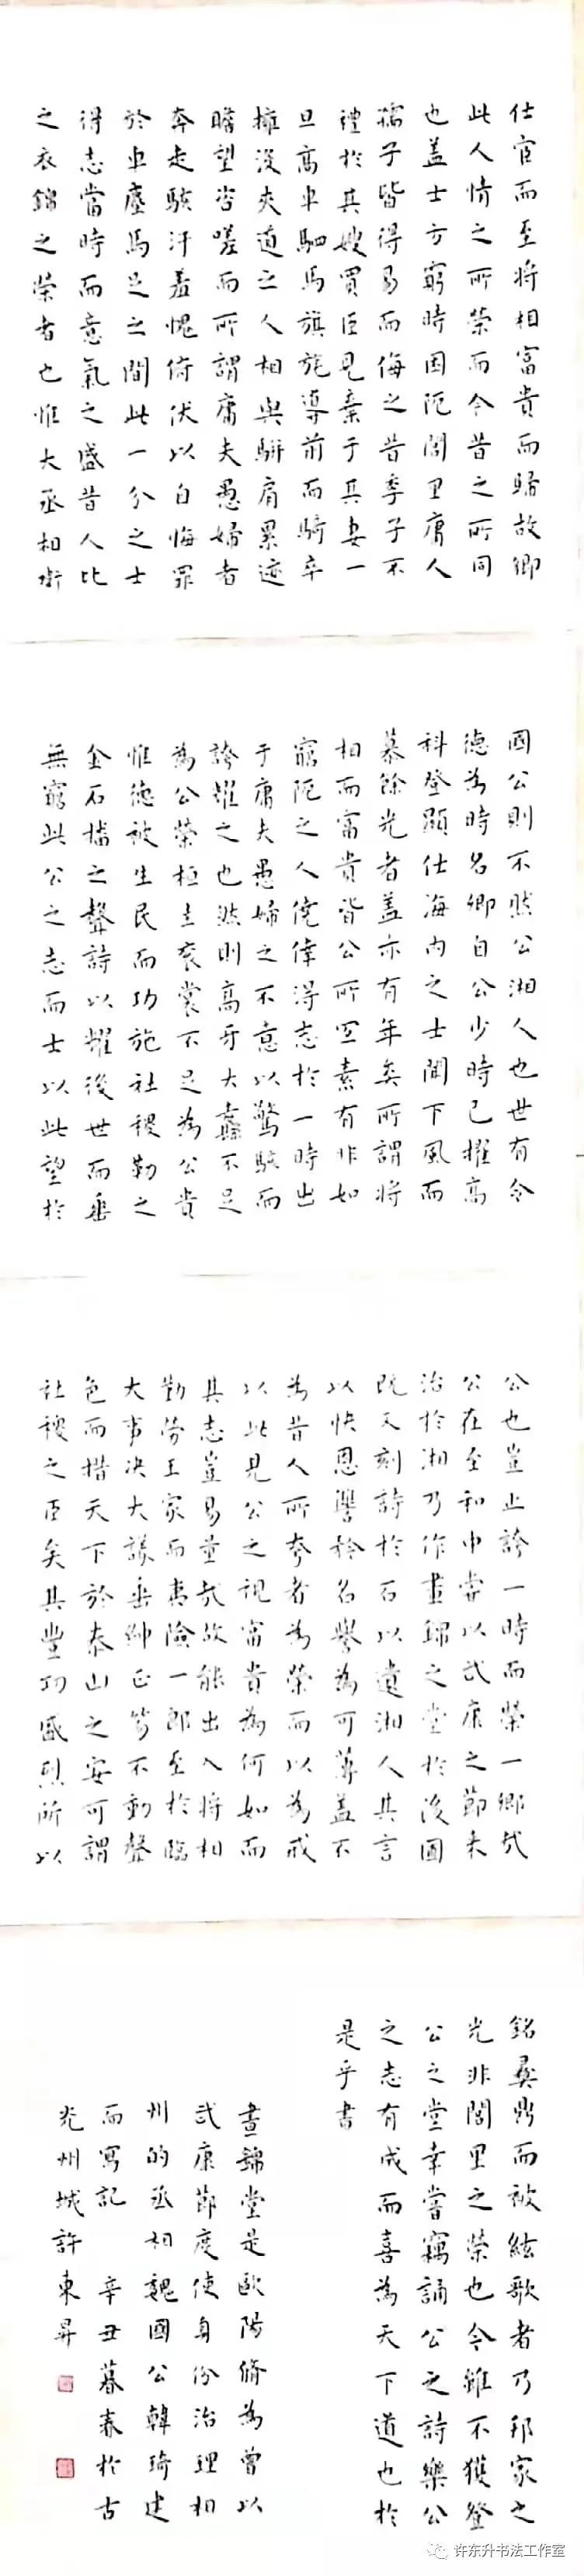 仕宦而至将相富貴而歸故鄉
此人情之所榮而今昔之所同
也蓋士方窮時困阨閭里庸人
孺子皆得易而侮之昔季子不
禮於其嫂買臣見棄于其妻一
旦高車駟馬旗旄導前而騎卒
擁後夾道之人相與騈肩累迹
瞻望咨嗟而所謂庸夫愚婦者
奔走駭汗羞愧俯伏以自悔罪
於車塵馬足之間此一介之士
得志當時而意氣之盛昔人比
之衣錦之榮者也惟大丞相衛
國公則不然公湘人也世有令
德為時名卿自公少時已擢高
科登顯仕海内之士聞下風而
慕餘光者蓋亦有年矣所謂将
相而富貴皆公所宜素有非如
窮阨之人僥倖得志於一時出
于庸夫愚婦之不意以驚駭而
誇耀之也然則高牙大纛不足
為公榮桓圭衮裳不足為公貴
惟德被生民而功施社稷勒之
金石播之聲詩以耀後世而垂
無窮此公之志而士以此望於
公也豈止誇一時而榮一鄉哉
公在至和中嘗以武康之節来
治於湘乃作晝錦之堂於後圃
既又刻詩於石以遺湘人其言
以快恩讐矜名譽為可薄蓋不
為昔人所夸者為榮而以為戒
以此見公之視富貴為何如而
其志豈易量哉故能出入将相
勤勞王家而夷險一節至於臨
大事决大議垂紳正笏不動聲
色而措天下於泰山之安可謂
社稷之臣矣其豐功盛烈所以
銘彝鼎而被絃歌者乃邦家之
光非閭里之榮也今雖不獲登
公之堂幸嘗竊誦公之詩樂公
之志有成而喜為天下道也於
是乎書
晝錦堂是歐陽脩為曾以
武康節度使身份治理相
州的丞相魏國公韓琦建
而寫記 辛丑暮春於古
光州城許東昇
许东升书法工作室